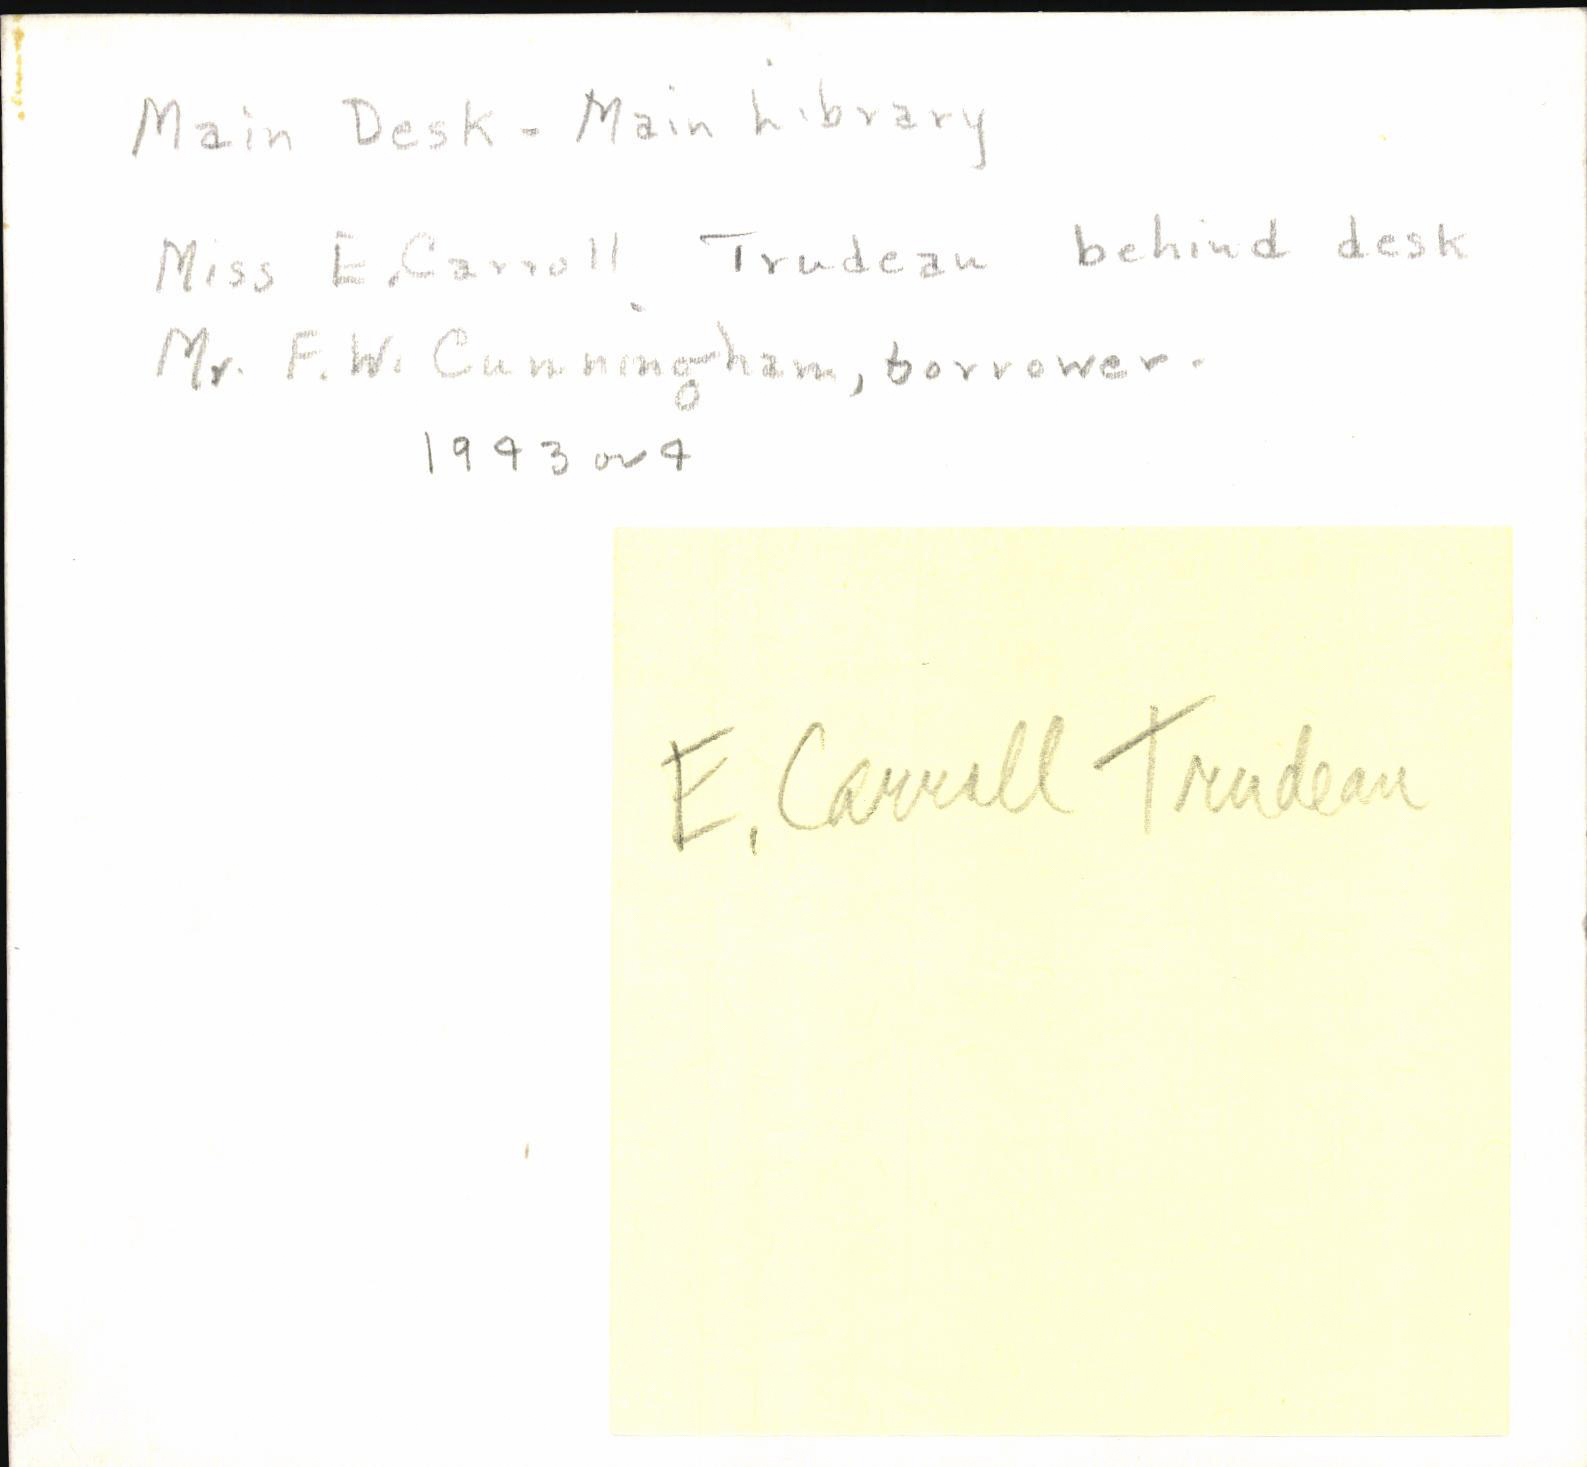 Main Desk - Main Library
Miss E. Carroll Trudeau behind desk
Mr. F. W. Cunningham, borrower.
1943 or 4
E. Carroll Trudeau